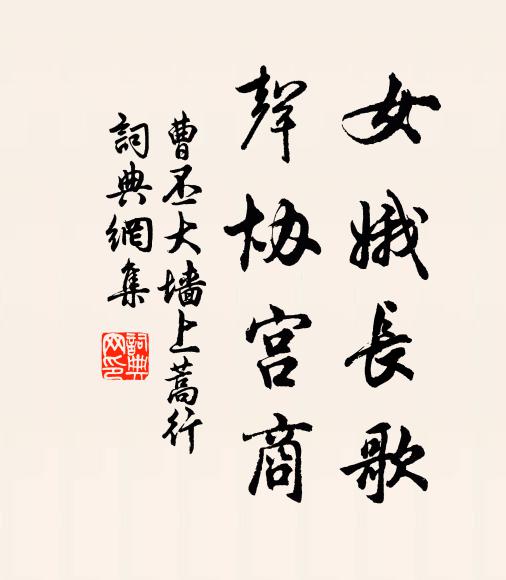 女娥長歌
聲协宫商
曹丕大墙上蒿行
詞典網集
詞典
网印